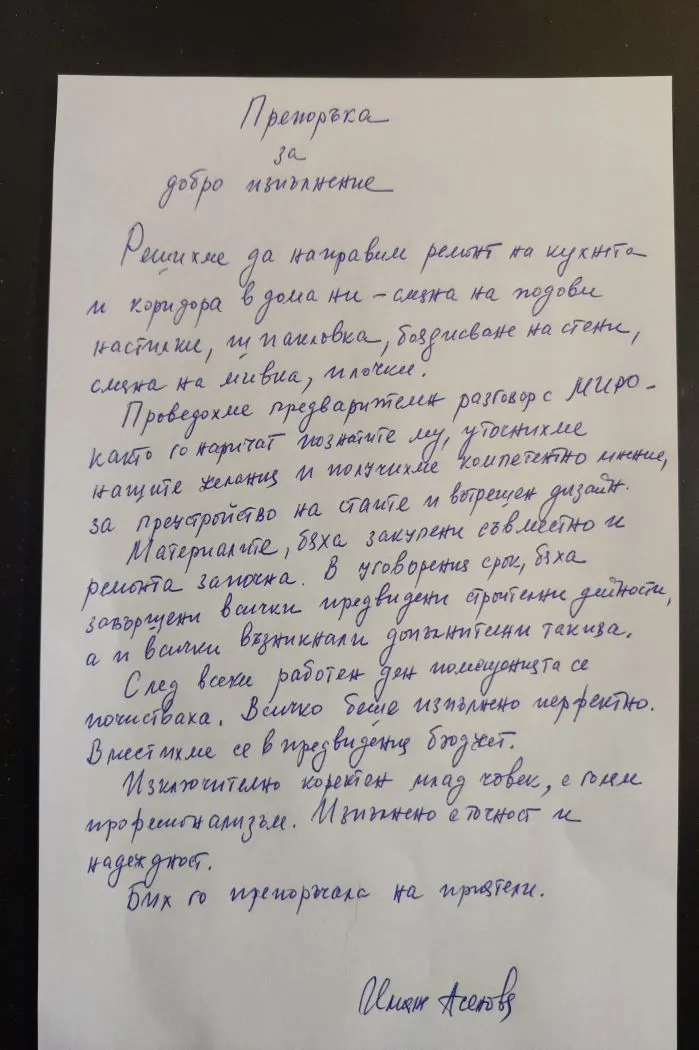 Препоръка
за
добро изпълнение
Решихме да направим ремонт на кухнята
и коридора в дома ни - смяна на подови
настилки, шпакловка, боядисване на стени,
смяна на мивка, плочки.
Проведохме предварителен разговор с МИРО -
както го наричат познатите му, уточнихме
нащите желания и получихме компетентно мнение,
за преустройство на стаите и вътрешен дизайн.
Материалите, бяха закупени съвместно и
ремонта започна. В уговорения срок, бяха
завършени всички предвидени строителни дейности,
а и всички възникнали допълнителни такива.
След всеки работен ден помещенията се
почистваха. Всичко беше изпълнено перфектно.
Вместихме се в предвидения бюджет.
Изключително коректен млад човек, с голям
професионализъм. Изпълнено с точност и
надеждност.
Бих го препоръчала на приятели.
Асенова